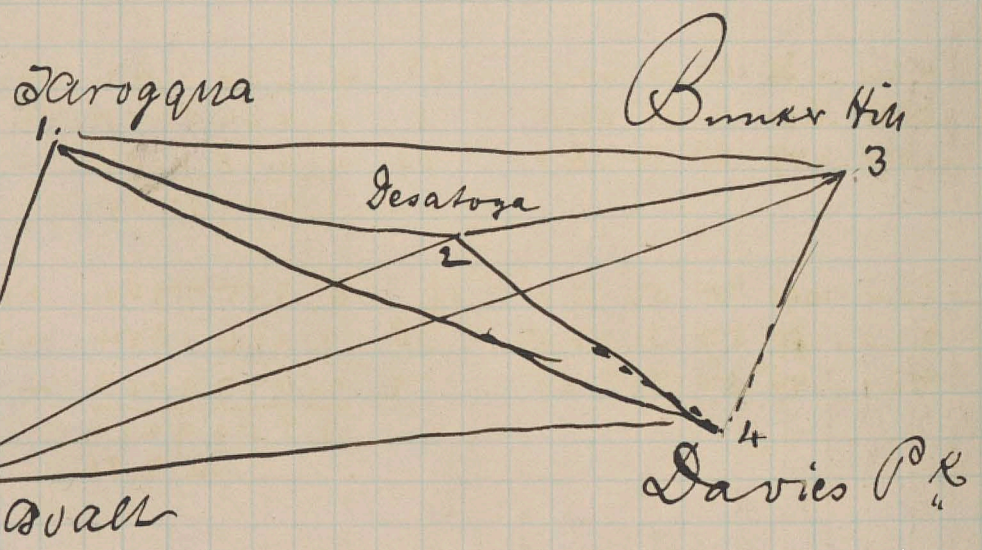 Jarogqua
1.
Bunker Hill
3
Desatoya
2
4
Davies Pk